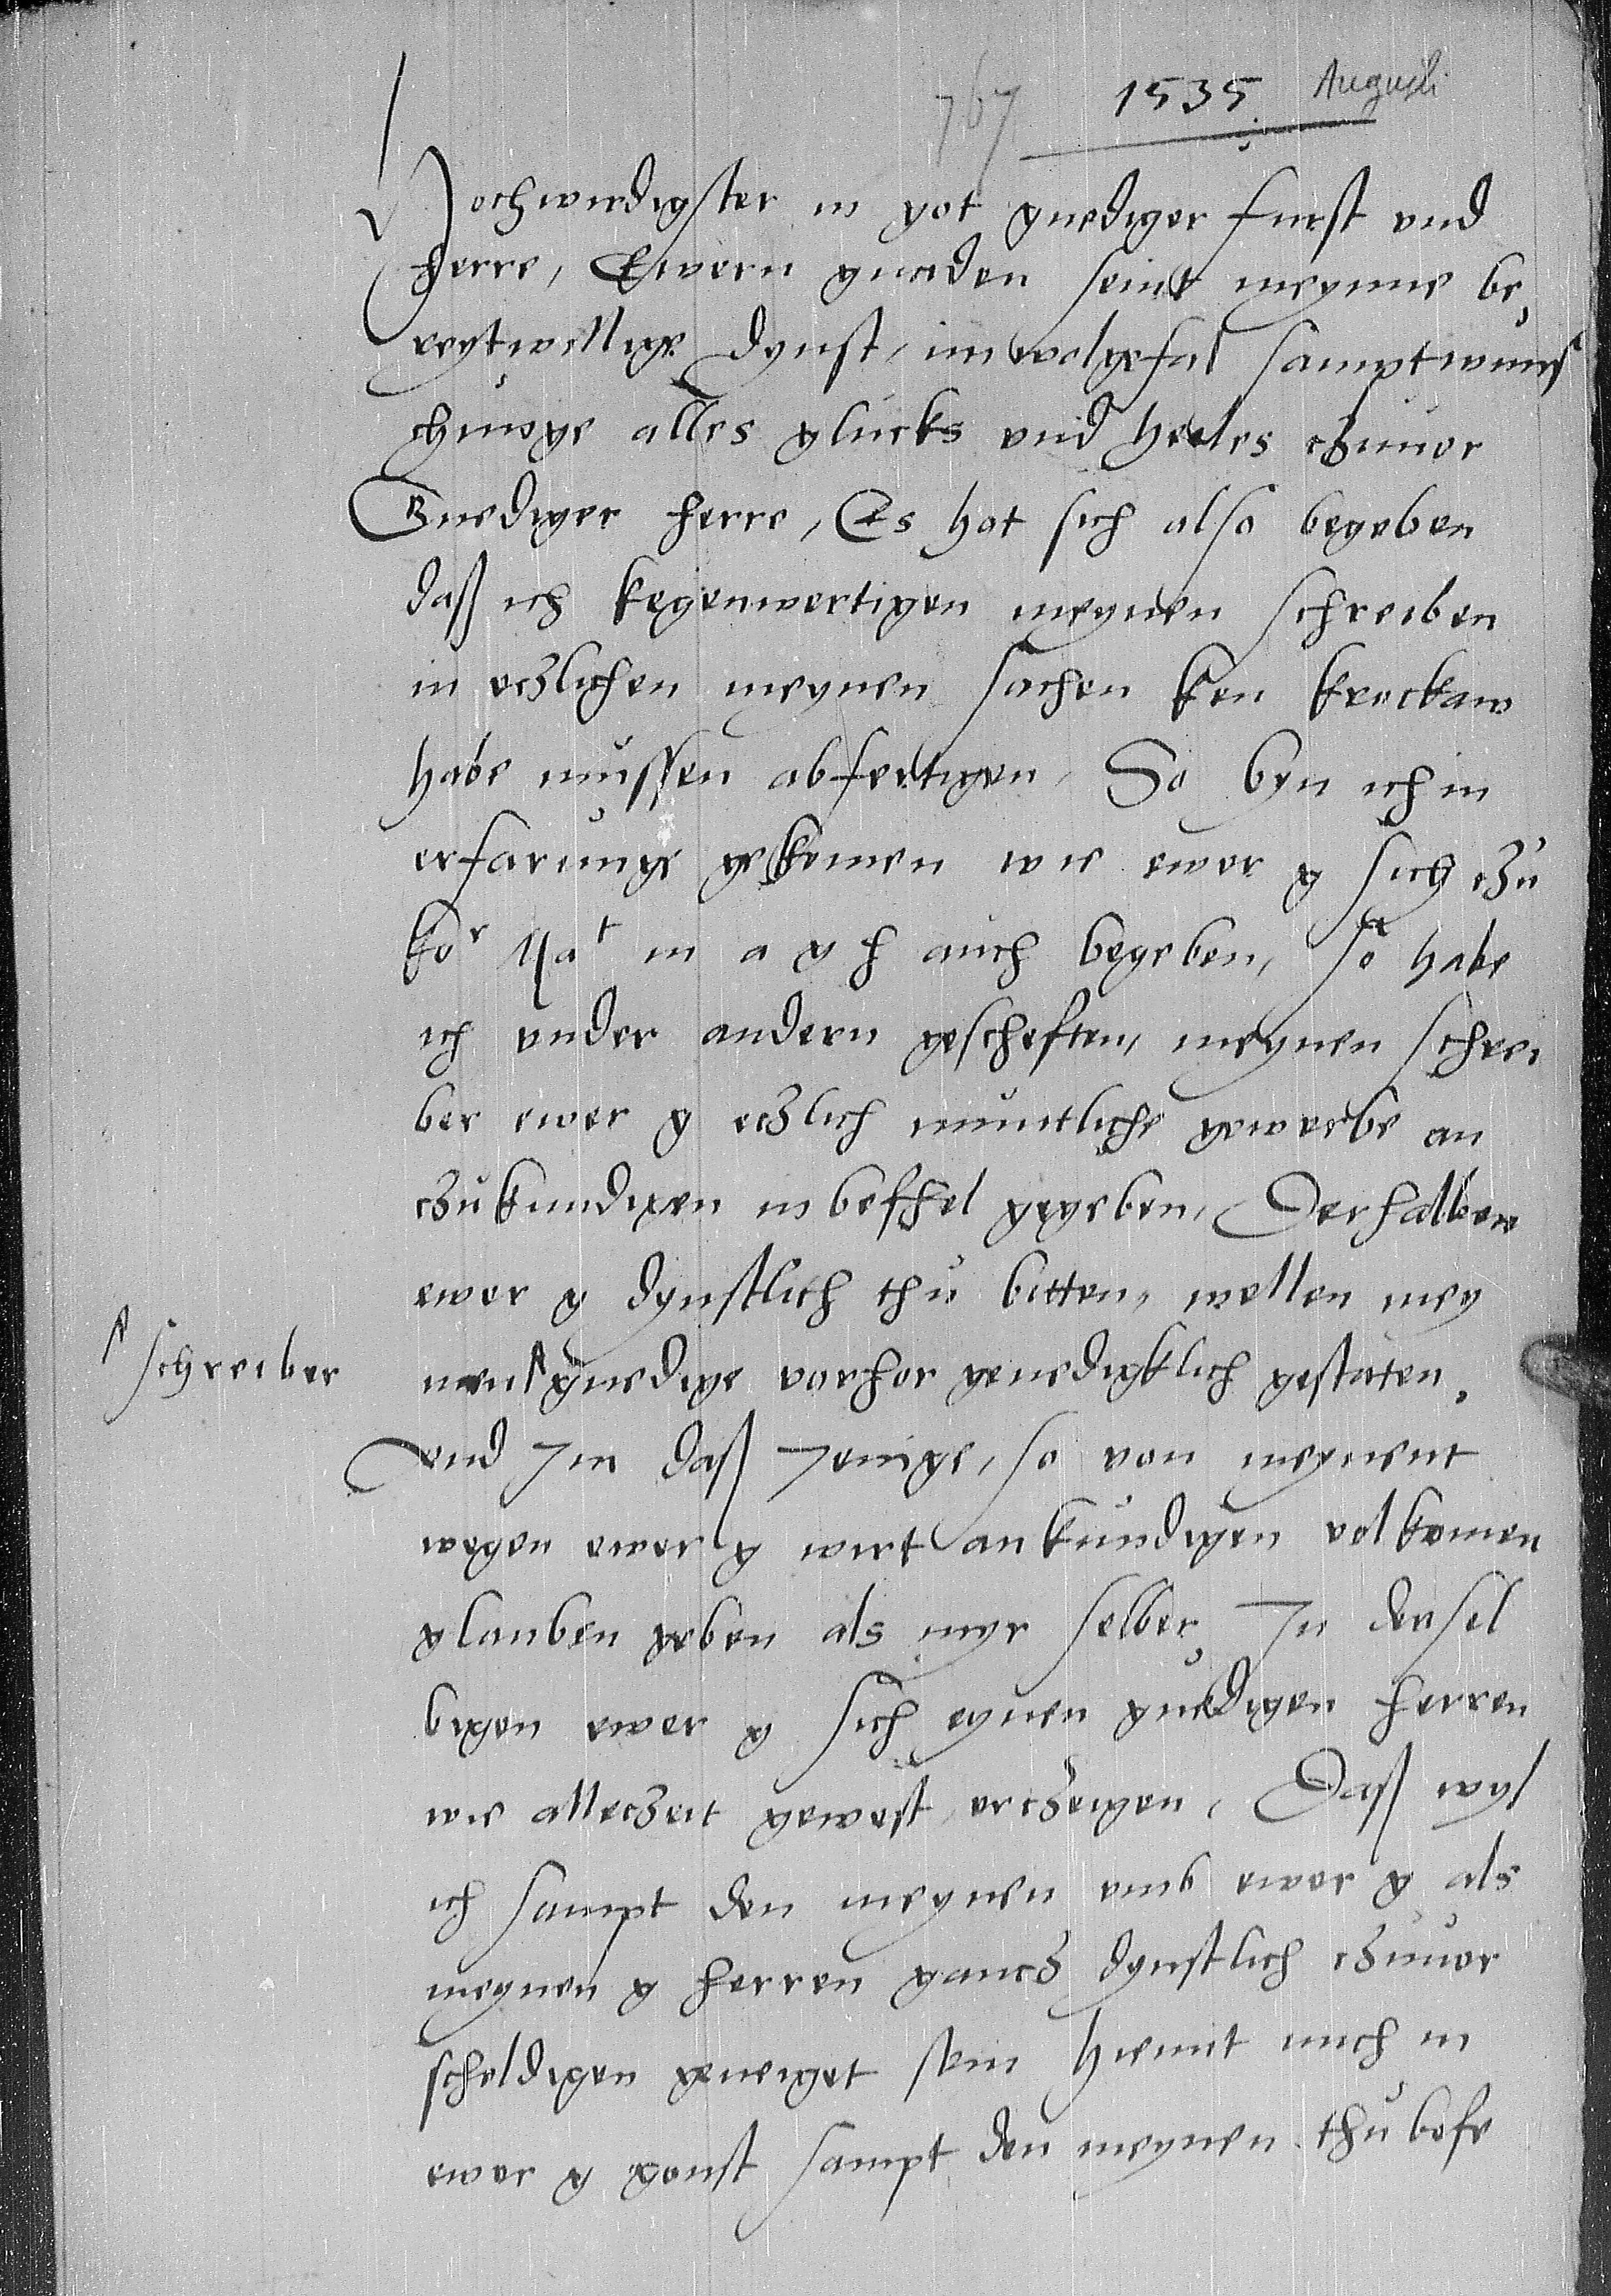 767 1535 Augusti
Hochwirdigster in got gnediger furst vnd
Herre, Ewern gnaden seint meyne be,
reytwillige dynst, im wolgefal sampt wuns
chunge alles glucks vnd heeles czuuor
Gnediger herre, Es hat sich also begeben
daß ich kegenwertigen meynen schreiben
in eczlichen meynen sachen ken krockaw
habe mussen abfertigen, So byn ich in
erfarunge gekomen wie ewer g sich czu
kor Mat m a g h auch begeben, so habe
ich vnder andern gescheften, meynen schrei
ber ewer g eczlich muntliche gewerbe an
czukundigen in befhel gegeben, Derhalben
ewer g dynstlich thu bitten, wellen mey
schreiber
nen gnedige vorhor genedigklich gestaten,
vnd Im daß Jenige, so von meynent
wegen ewer g wirt ankundigen volkomen
glauben geben als myr selber, In densel
bigen ewer g sich eynen gnedigen herren
wie alleczeit gewest, erczeigen, Daß wyl
ich sampt den meynen vmb ewer g als
meynen g herren gancz dynstlich czuuor
scholdigen geneiget sein hiemit mich in
ewer g gonst sampt den meynen thu befe